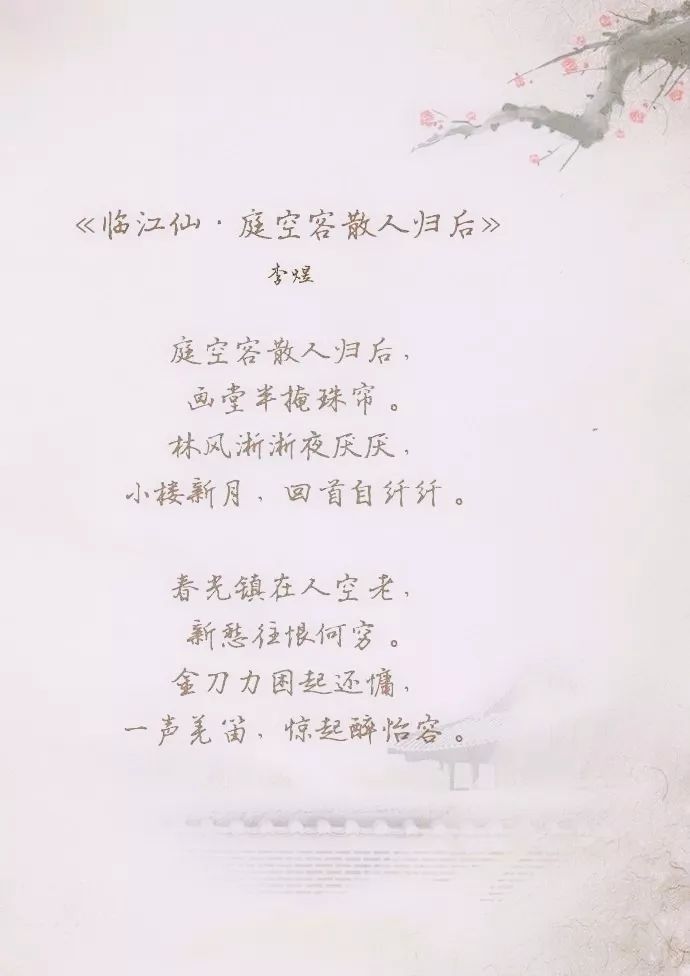 《临江仙·庭空客散人归后》
李煜
庭空客散人归后，
画堂半掩珠帘。
林风淅淅夜厌厌，
小楼新月，回首自纤纤。
春光镇在人空老，
新愁往恨何穷。
金刀力困起还慵，
一声羌笛，惊起醉怡容。